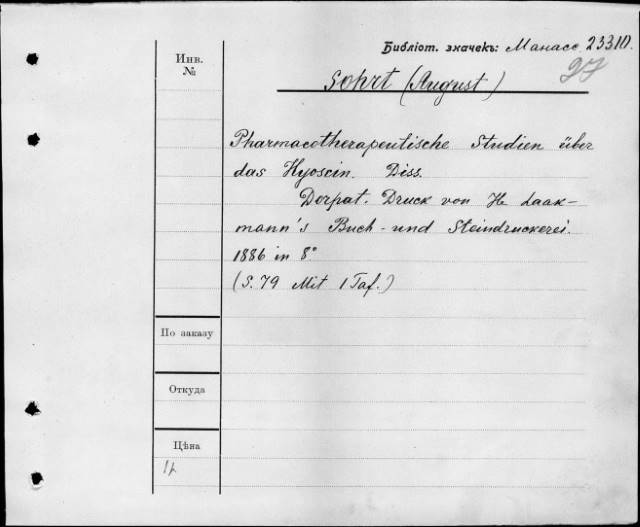 Библіот. значекъ: Манасс. 23310.
27
Инв.
№
Sohrt (August)
Pharmacotherapeutische Studien über
das Hyoscin. Diss.
Dorpat. Druck von H. Laak-
mann's Buch- und Steindruckerei.
1886 in 8°
(S. 79 Mit 1 Taf.)
По заказу
Откуда
Цѣна